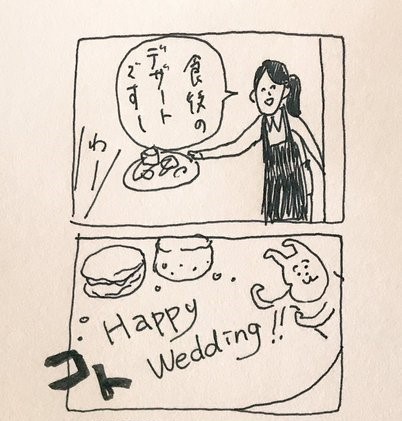 食後の
デザート
ですー
わー
Happy
Wedding!!
コト